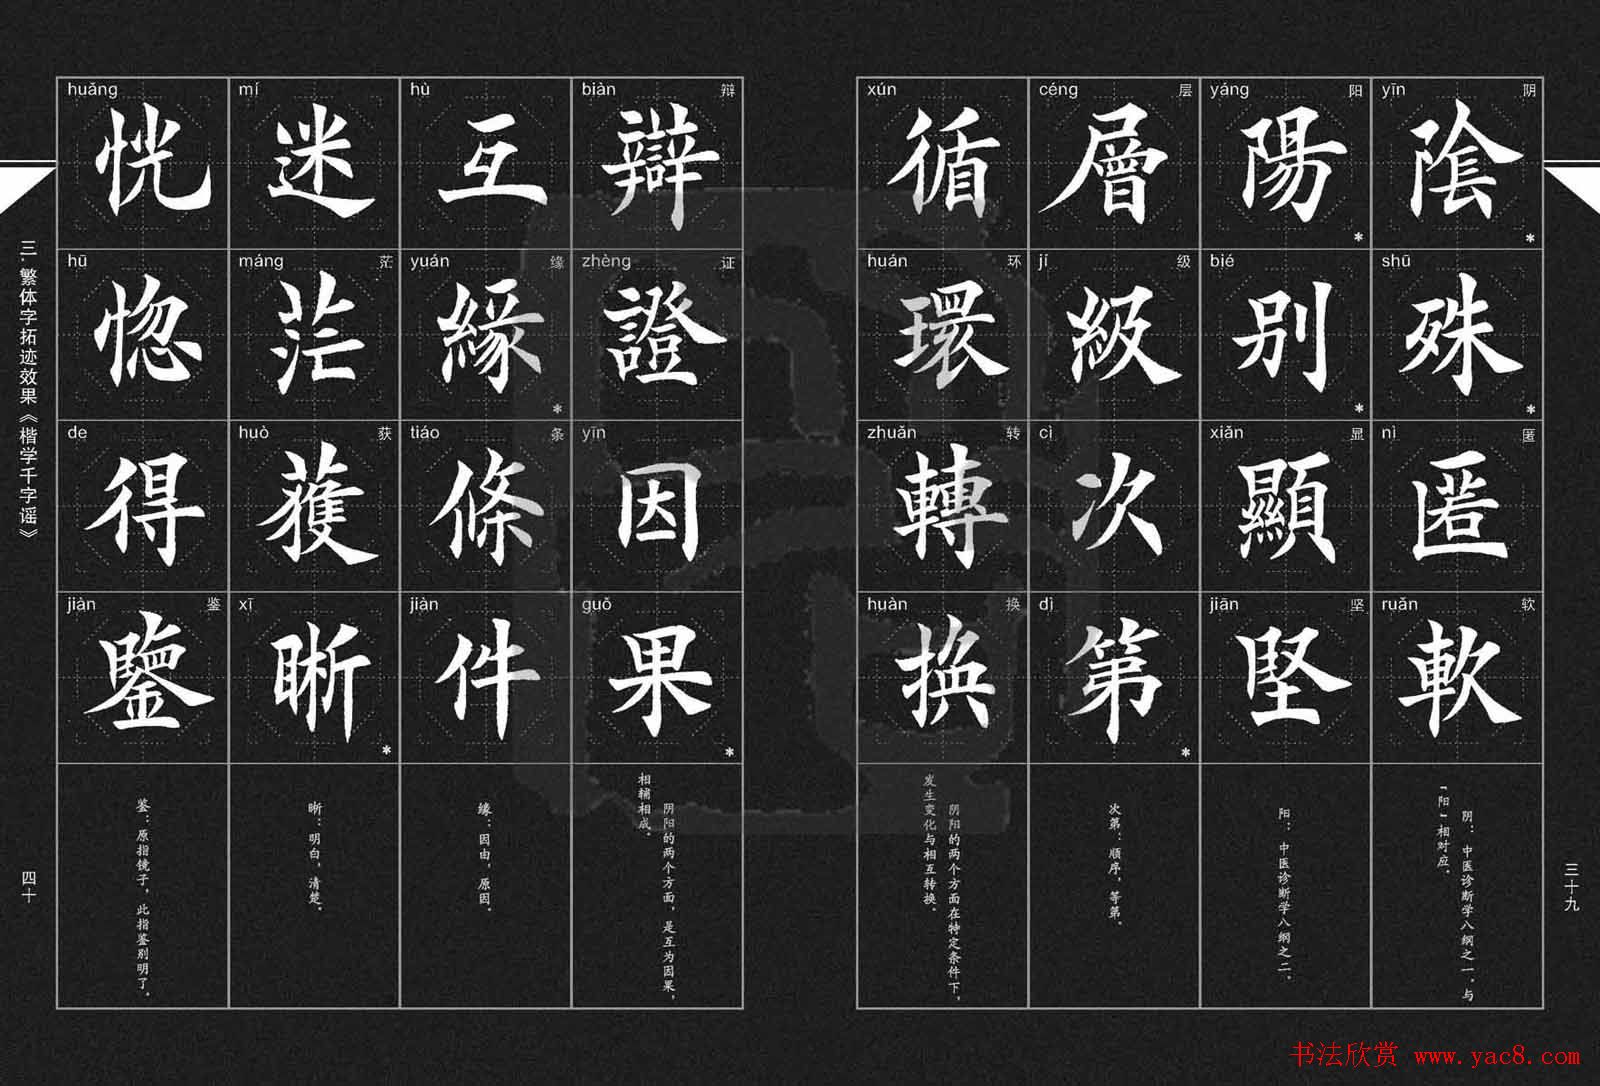 阴 yīn 陰 *
shū 殊 *
匿 nì 匿
软 ruǎn 軟
阴：中医诊断学八纲之一。与
“阳”相对应。
阳 yáng 陽 *
bié 别 *
显 xiǎn 顯
坚 jiān 堅
阳：中医诊断学八纲之二。
层 céng 層
级 jí 級
cì 次
dì 第 *
次第：顺序，等第。
xún 循
环 huán 環
转 zhuǎn 轉
换 huàn 换
阴阳的两个方面在特定条件下，
发生变化与相互转换。
三十九
辩 biàn 辯
证 zhèng 證
yīn 因
guǒ 果 *
阴阳的两个方面，是互为因果，
相辅相成。
hù 互
缘 yuán 緣 *
条 tiáo 條
jiàn 件
缘：因由，原因。
mí 迷
茫 máng 茫
获 huò 獲
xī 晰 *
晰：明白，清楚。
huǎng 恍
hū 惚
de 得
鉴 jiàn 鑒
鉴：原指镜子，此指鉴别明了。
三·繁体字拓迹效果《楷学千字谣》
四十
书法欣赏 www.yac8.com